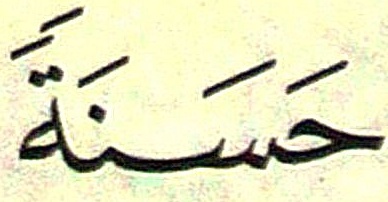 حَسَنَةً